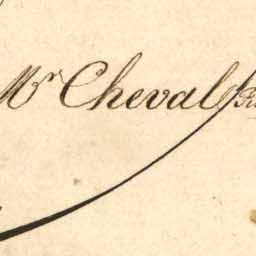 Mr Cheval